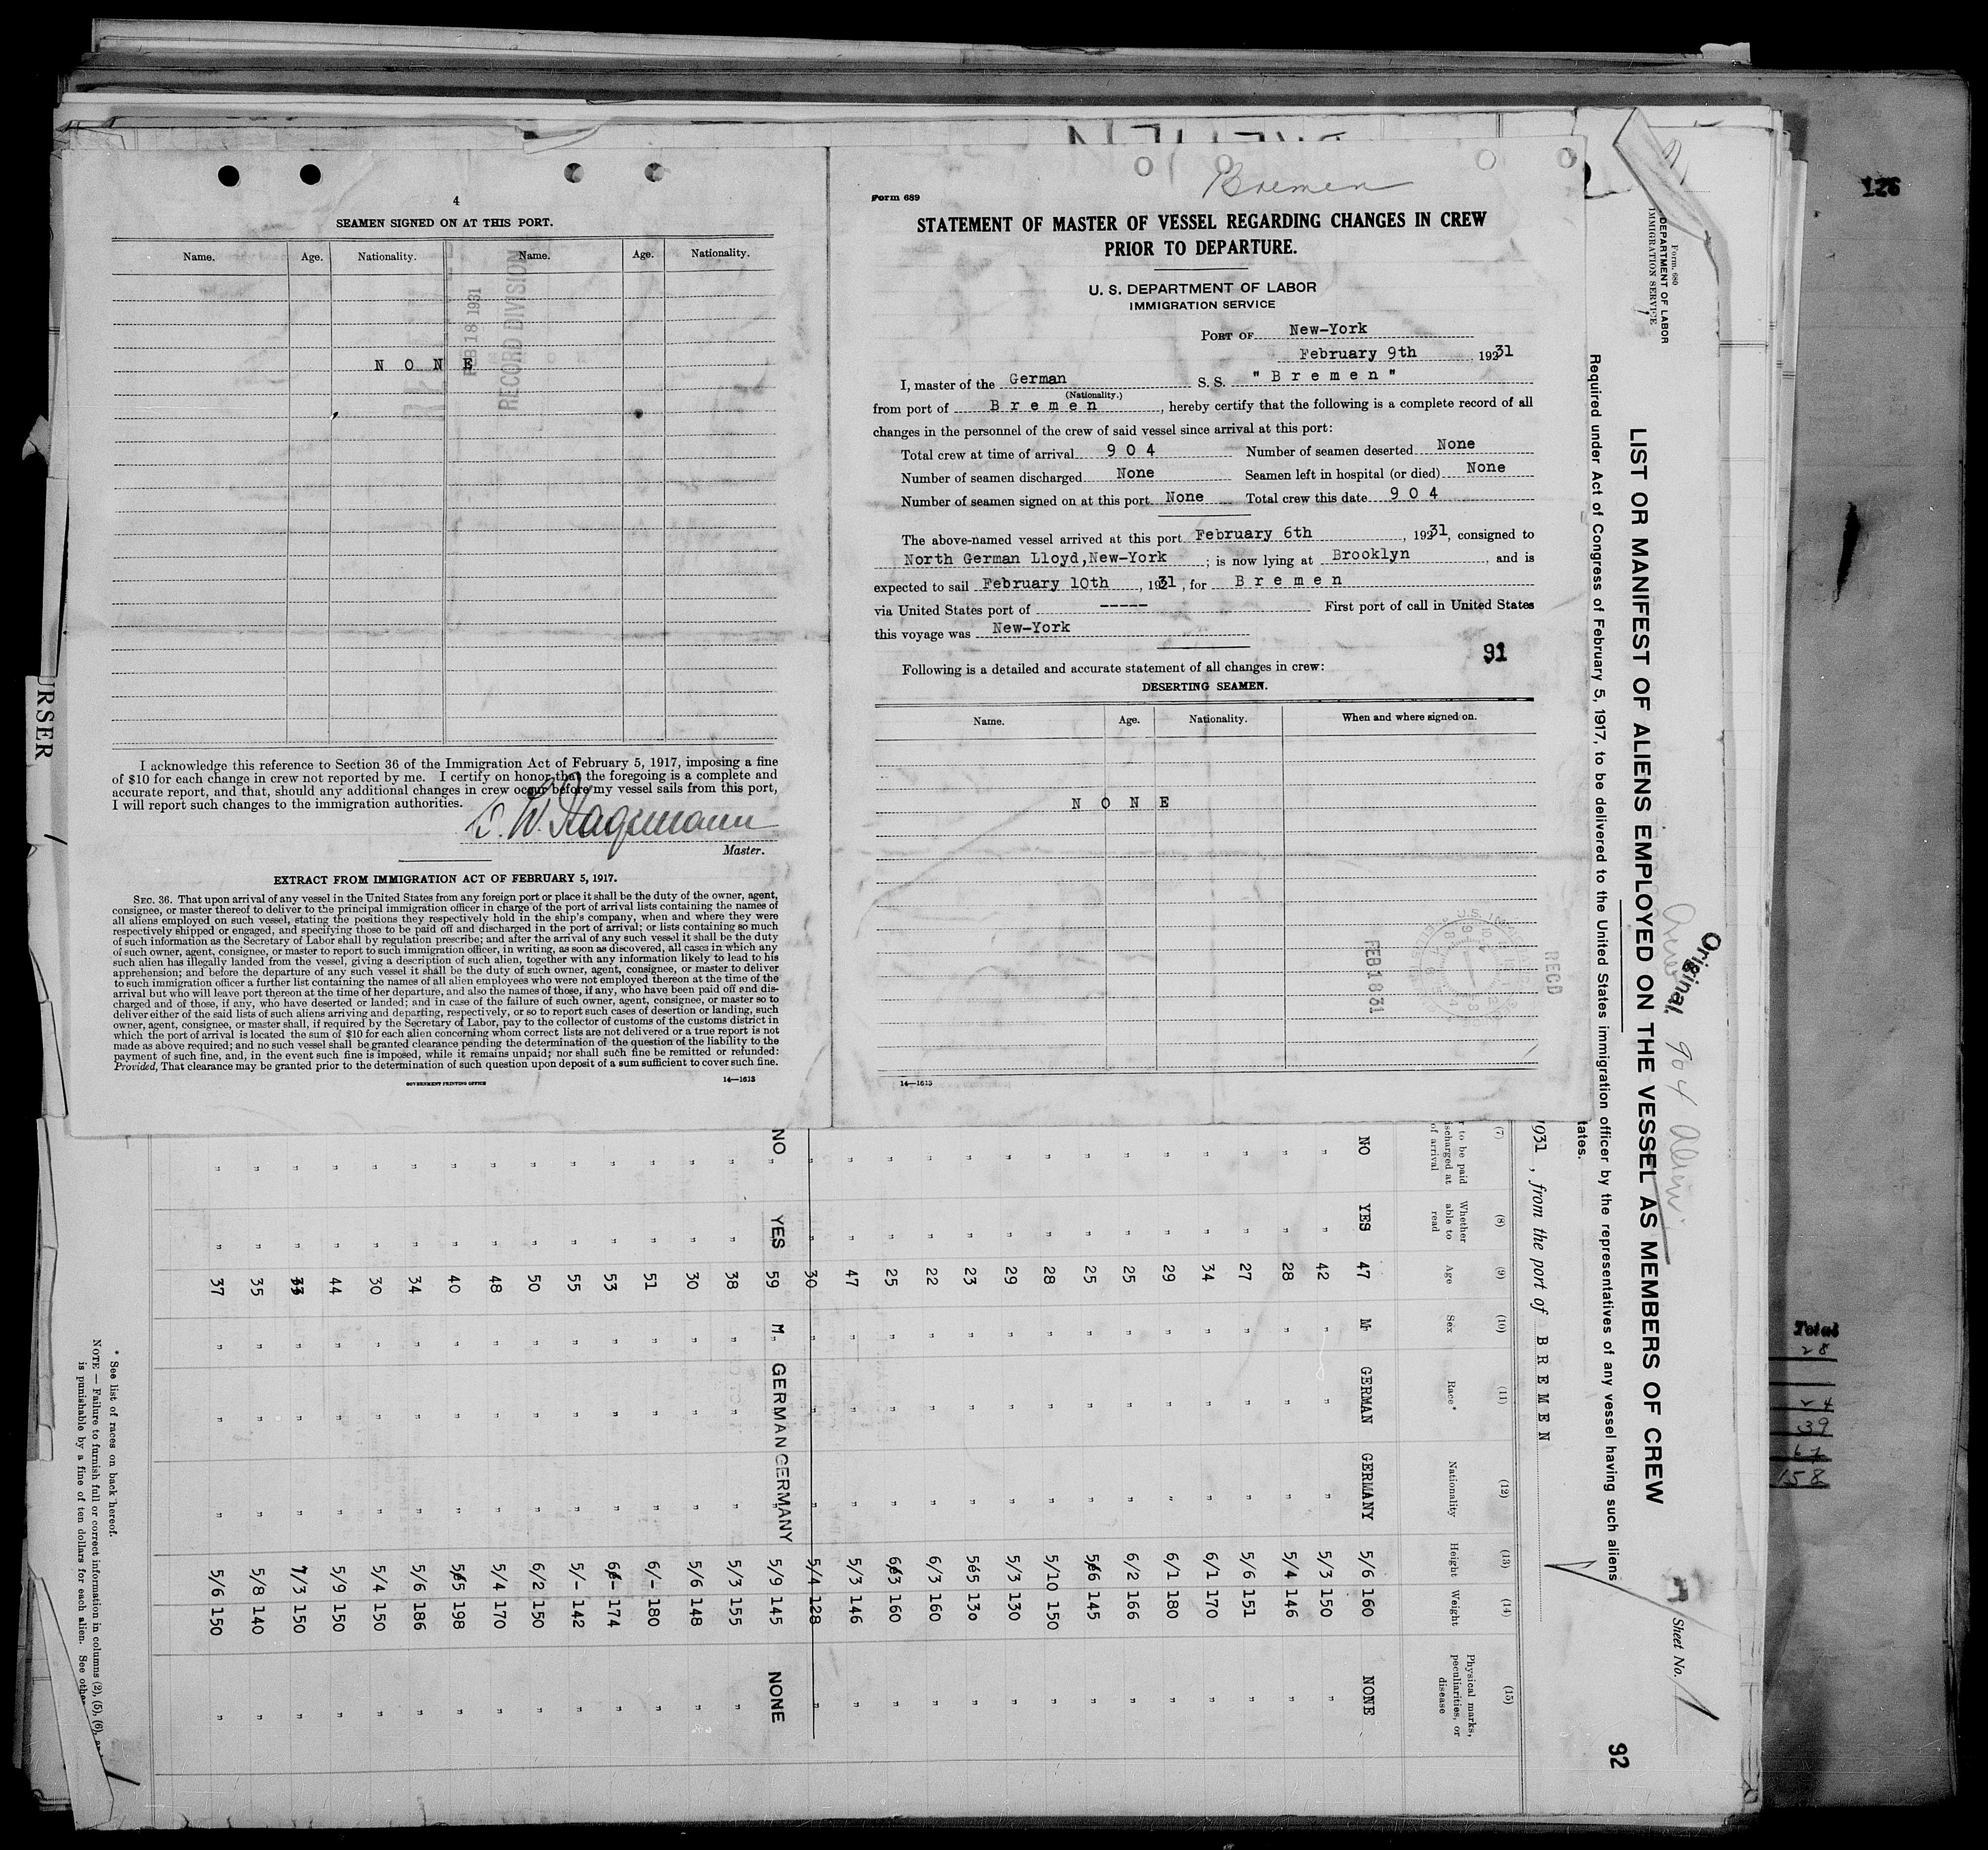 4
SEAMEN SIGNED ON AT THIS PORT.
Name. Age. Nationality. Name. Age. Nationality.
N O N E
FEB 18 1931
RECORD DIVISION
I acknowledge this reference to Section 36 of the Immigration Act of February 5, 1917, imposing a fine
of $10 for each change in crew not reported by me. I certify on honor that the foregoing is a complete and
accurate report, and that, should any additional changes in crew occur before my vessel sails from this port,
I will report such changes to the immigration authorities.
Master.
EXTRACT FROM IMMIGRATION ACT OF FEBRUARY 5, 1917.
SEC. 36. That upon arrival of any vessel in the United States from any foreign port or place it shall be the duty of the owner, agent,
consignee, or master thereof to deliver to the principal immigration officer in charge of the port of arrival lists containing the names of
all aliens employed on such vessel, stating the positions they respectively hold in the ship's company, when and where they were
respectively shipped or engaged, and specifying those to be paid off and discharged in the port of arrival; or lists containing so much
of such information as the Secretary of Labor shall by regulation prescribe; and after the arrival of any such vessel it shall be the duty
of such owner, agent, consignee, or master to report to such immigration officer, in writing, as soon as discovered, all cases in which any
such alien has illegally landed from the vessel, giving a description of such alien, together with any information likely to lead to his
apprehension; and before the departure of any such vessel it shall be the duty of such owner, agent, consignee, or master to deliver
to such immigration officer a further list containing the names of all alien employees who were not employed thereon at the time of the
arrival but who will leave port thereon at the time of her departure, and also the names of those, if any, who have been paid off and dis-
charged and of those, if any, who have deserted or landed; and in case of the failure of such owner, agent, consignee, or master so to
deliver either of the said lists of such aliens arriving and departing, respectively, or so to report such cases of desertion or landing, such
owner, agent, consignee, or master shall, if required by the Secretary of Labor, pay to the collector of customs of the customs district in
which the port of arrival is located the sum of $10 for each alien concerning whom correct lists are not delivered or a true report is not
made as above required; and no such vessel shall be granted clearance pending the determination of the question of the liability to the
payment of such fine, and, in the event such fine is imposed, while it remains unpaid; nor shall such fine be remitted or refunded:
Provided, That clearance may be granted prior to the determination of such question upon deposit of a sum sufficient to cover such fine.
GOVERNMENT PRINTING OFFICE 14—1613
Bremen
Form 689
STATEMENT OF MASTER OF VESSEL REGARDING CHANGES IN CREW
PRIOR TO DEPARTURE.
U. S. DEPARTMENT OF LABOR
IMMIGRATION SERVICE
PORT OF New-York
February 9th 1931
I, master of the German S. S. " B r e m e n "
(Nationality.)
from port of B r e m e n , hereby certify that the following is a complete record of all
changes in the personnel of the crew of said vessel since arrival at this port:
Total crew at time of arrival 9 0 4 Number of seamen deserted None
Number of seamen discharged None Seamen left in hospital (or died) None
Number of seamen signed on at this port None Total crew this date 9 0 4
The above-named vessel arrived at this port February 6th , 1931, consigned to
North German Lloyd,New-York ; is now lying at Brooklyn , and is
expected to sail February 10th , 1931 , for B r e m e n
via United States port of ----- First port of call in United States
this voyage was New-York
91
Following is a detailed and accurate statement of all changes in crew:
DESERTING SEAMEN.
Name. Age. Nationality. When and where signed on.
N O N E
FEB 18 31
RECD
14—1613
126
Form 680
DEPARTMENT OF LABOR
IMMIGRATION SERVICE
Original
904
LIST OR MANIFEST OF ALIENS EMPLOYED ON THE VESSEL AS MEMBERS OF CREW
Required under Act of Congress of February 5, 1917, to be delivered to the United States immigration officer by the representatives of any vessel having such aliens
tates.
Sheet No. 1
92
1931 , from the port of B R E M E N
(7) (8) (9) (10) (11) (12) (13) (14) (15)
to be paid
ischarged at
of arrival
Whether
able to
read
Age Sex Race* Nationality Height Weight
Physical marks,
peculiarities, or
disease
NO YES 47 M GERMAN GERMANY 5/6 160 NONE
" " 42 " " " 5/3 150 "
" " 28 " " " 5/4 146 "
" " 27 " " " 5/6 151 "
" " 34 " " " 6/1 170 "
" " 29 " " " 6/1 180 "
" " 25 " " " 6/2 166 "
" " 25 " " " 145 "
" " 28 " " " 5/10 150 "
" " 29 " " " 5/3 130 "
" " 23 " " " 130 "
" " 22 " " " 6/3 160 "
" " 25 " " " 160 "
" " 47 " " " 5/3 146 "
" " 30 " " " 5/4 128 "
NO YES 59 M GERMAN GERMANY 5/9 145 NONE
" " 38 " " " 5/3 155 "
" " 30 " " " 5/6 148 "
" " 51 " " " 6/- 180 "
" " 53 " " " 174 "
" " 55 " " " 5/- 142 "
" " 50 " " " 6/2 150 "
" " 48 " " " 5/4 170 "
" " 40 " " " 198 "
" " 34 " " " 5/6 186 "
" " 30 " " " 5/4 150 "
" " 44 " " " 5/9 150 "
" " 33 " " " 150 "
" " 35 " " " 5/8 140 "
" " 37 " " " 5/6 150 "
* See list of races on back hereof.
NOTE — Failure to furnish full or correct information in columns (2), (5), (6),
is punishable by a fine of ten dollars for each alien. See othe
URSER
Total
28
24
39
67
158